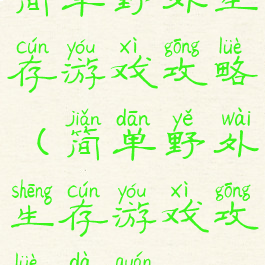 简单野外生
cún yóu xì gōng lüè
存游戏攻略
jiǎn dān yě wài
（简单野外
shēng cún yóu xì gōng
生存游戏攻
lüè dà quán